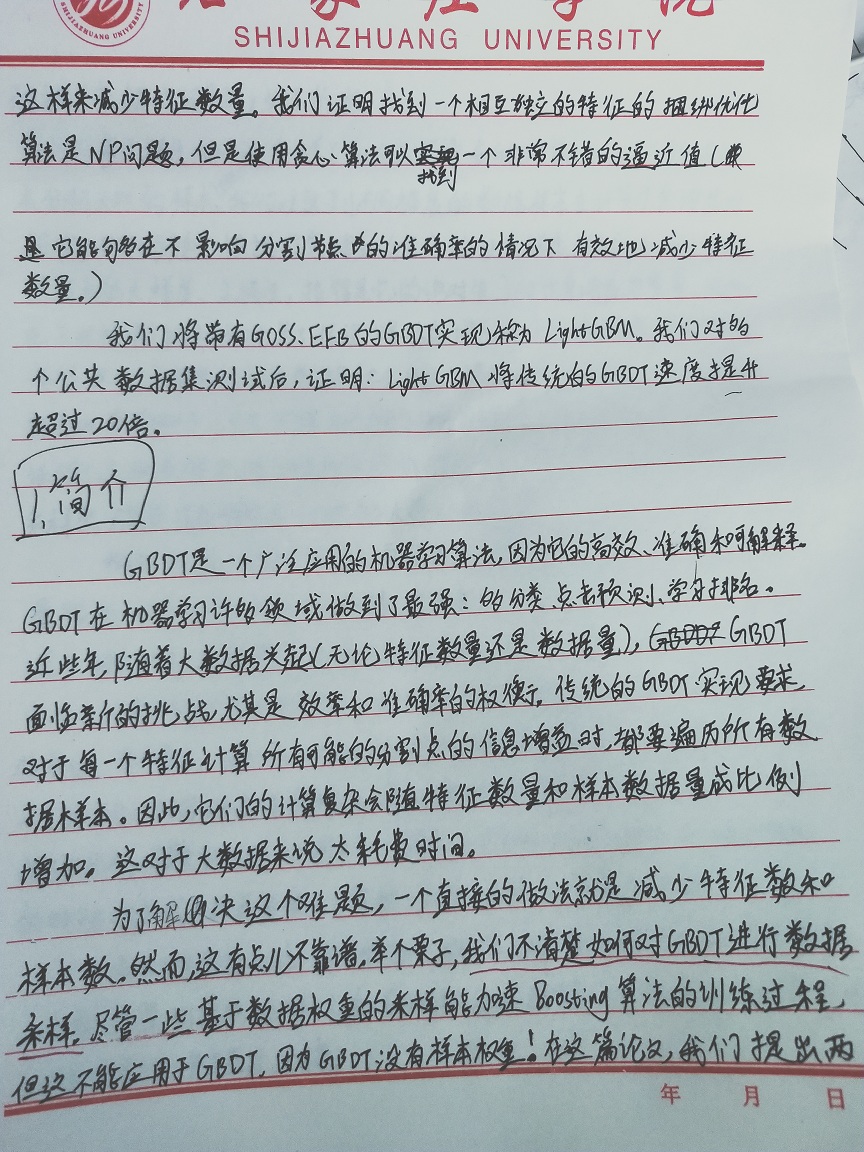 SHIJIAZHUANG UNIVERSITY
这样来减少特征数量。我们证明找到一个相互独立的特征的捆绑优化
算法是NP问题,但是使用贪心算法可以找到一个非常不错的逼近值(
它能够在不影响分割节点的准确率的情况下有效地减少特征
数量。)
我们将带有GOSS、EFB的GBDT实现称为LightGBM。我们对
个公共数据集测试后,证明:LightGBM将传统的GBDT速度提升
超过20倍。
1.简介
GBDT是一个广泛应用的机器学习算法,因为它的高效、准确和可解释。
GBDT在机器学习许多领域做到了最强:多分类、点击预测、学习排名。
近些年,随着大数据兴起(无论特征数量还是数据量),GBDT
面临新的挑战,尤其是效率和准确率的权衡。传统的GBDT实现要求,
对于每一个特征计算所有可能的分割点的信息增益时,都要遍历所有数
据样本。因此,它们的计算复杂会随特征数量和样本数据量成比例
增加。这对于大数据来说太耗费时间。
为了解决这个难题,一个直接的做法就是减少特征数和
样本数。然而,这有点儿不靠谱,举个栗子,我们不清楚如何对GBDT进行数据
采样。尽管一些基于数据权重的采样能加速Boosting算法的训练过程,
但这不能应用于GBDT,因为GBDT没有样本权重!在这篇论文,我们提出两
年 月 日